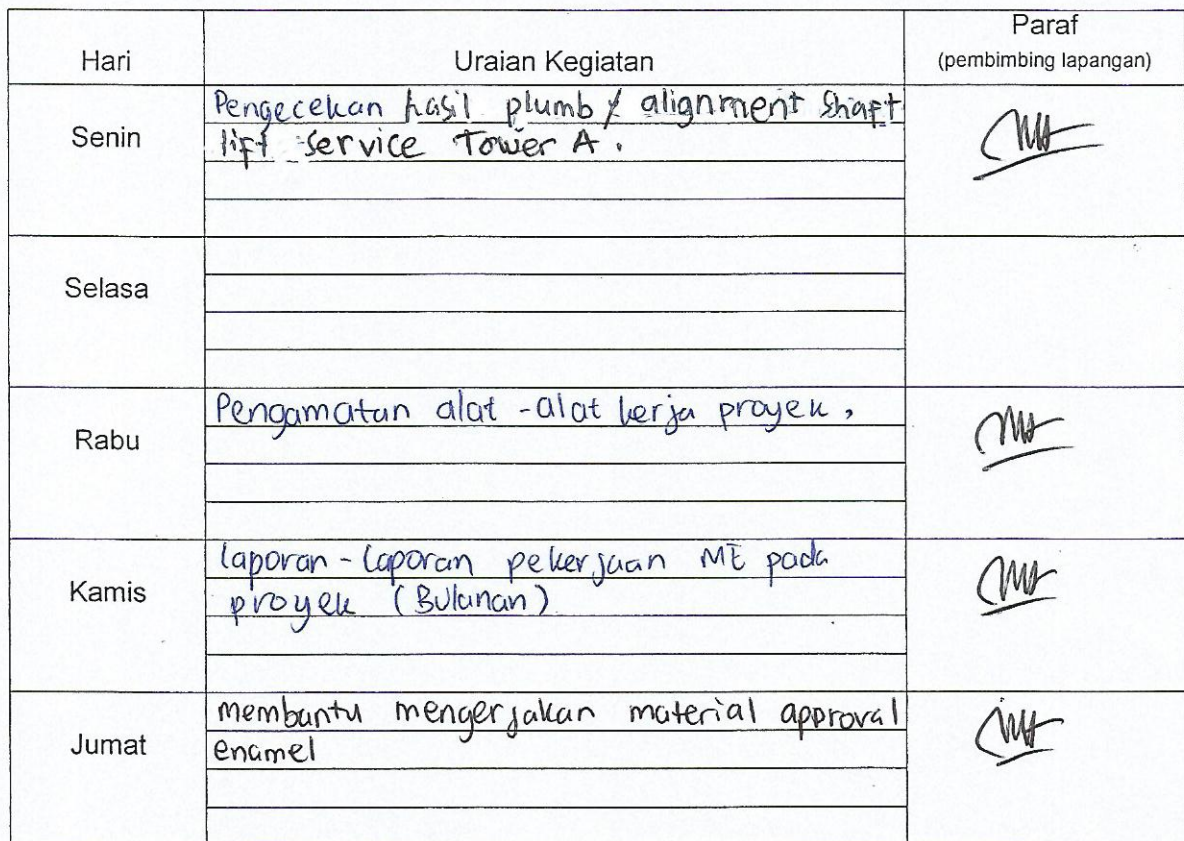 Hari
Uraian Kegiatan
Paraf
(pembimbing lapangan)
Senin
Pengecekan hasil plumb / alignment shaft
lift service Tower A.
Selasa
Rabu
Pengamatan alat-alat kerja proyek,
Kamis
laporan-laporan pekerjaan ME pada
proyek (Bulanan)
Jumat
membantu mengerjakan material approval
enamel